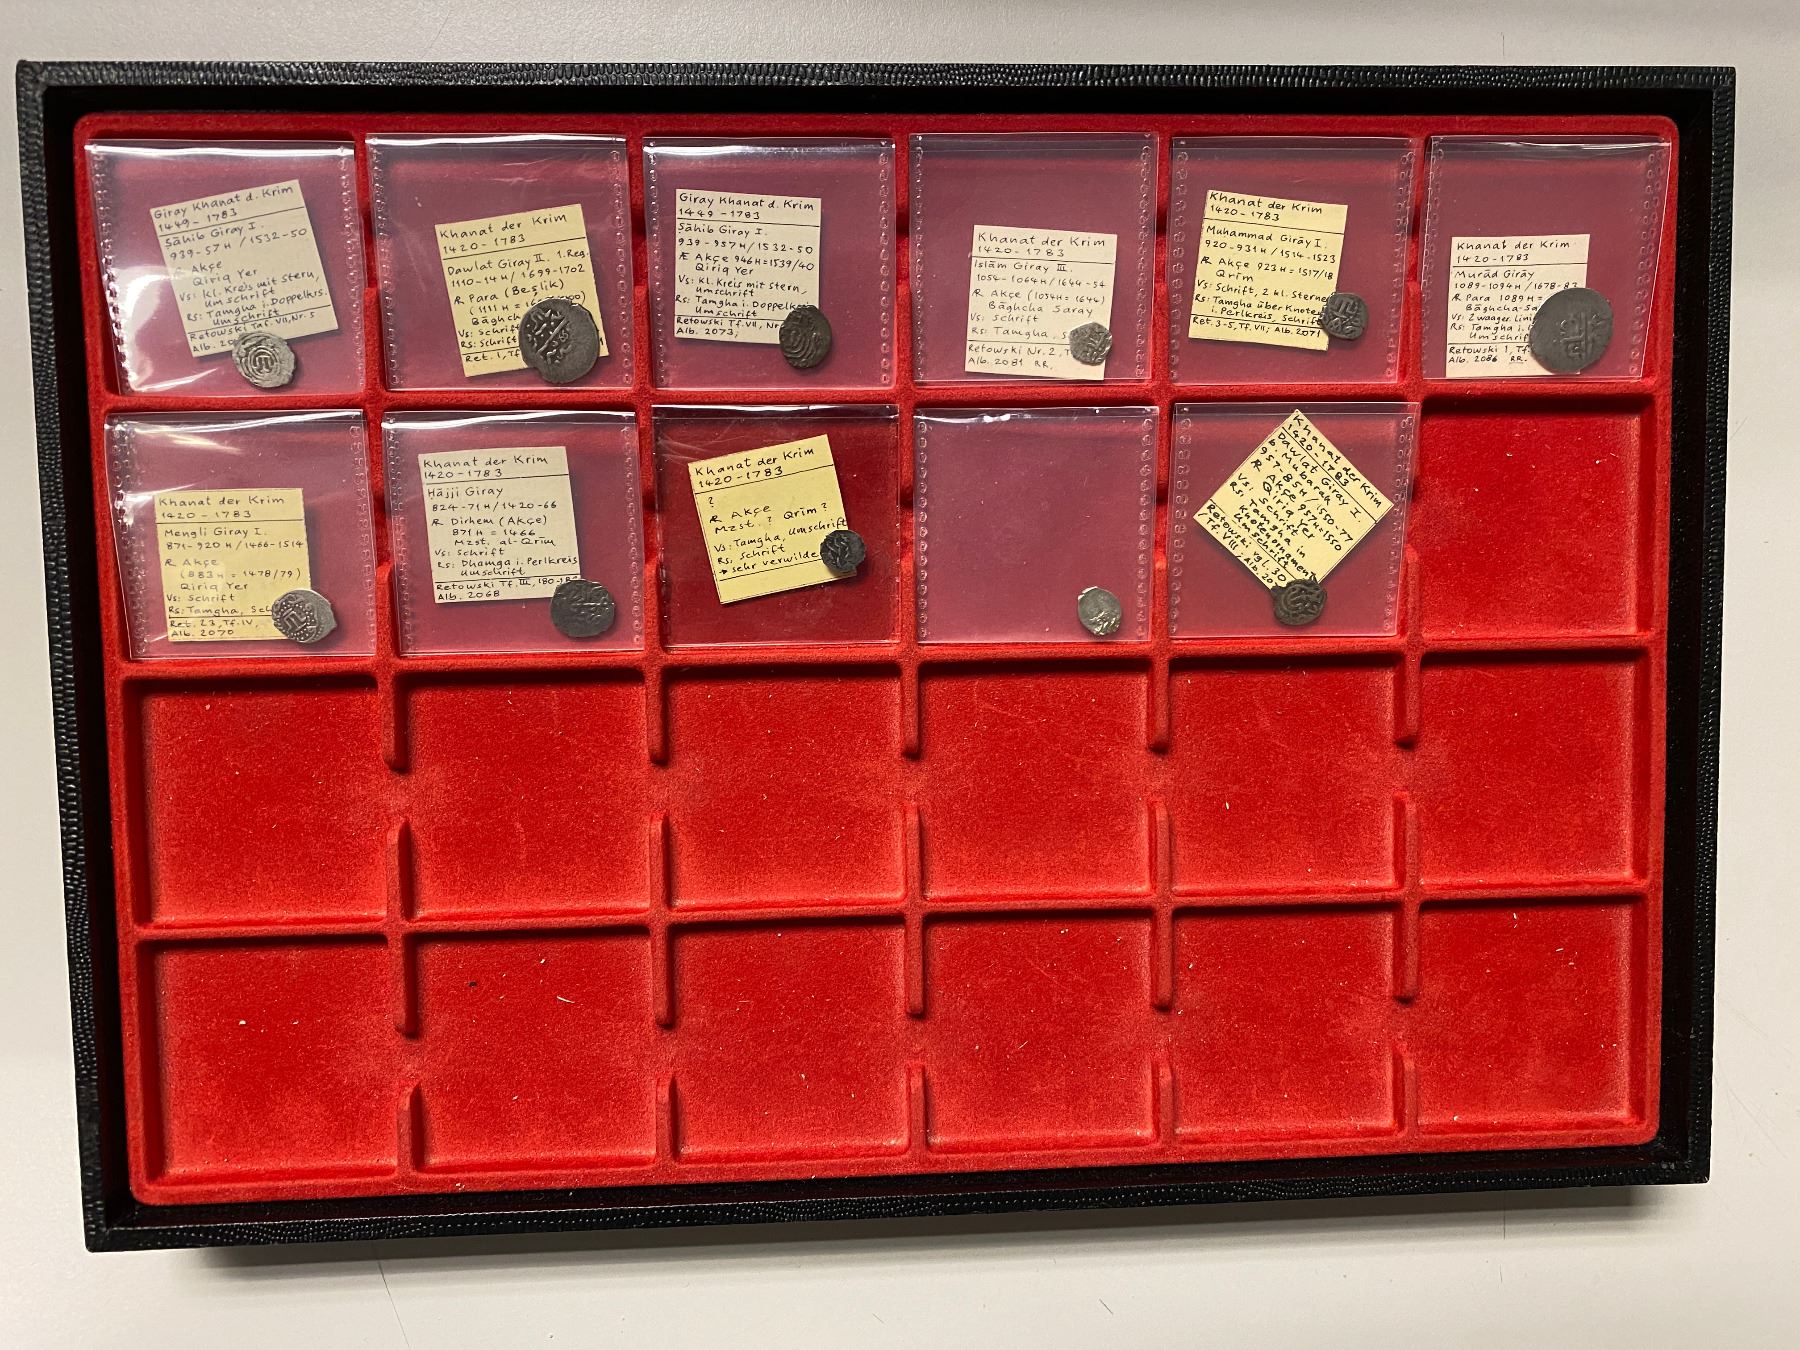 Giray Khanat d. Krim
1449 - 1783
Ṣāhib Giray I.
939-57H / 1532-50
Akçe
Qiriq Yer
Vs: Kl. Kreis mit Stern,
Umschrift
Rs: Tamgha i. Doppelkrs.
Umschrift
Retowski Taf. VII, Nr. 5
Alb.
Khanat der Krim
1420 - 1783
Dawlat Giray II. 1. Reg.
1110-14H / 1699-1702
Æ Para (Beşlik)
(1111 H =
Bāghch
Vs: Schrift
Rs: Schrift
Ret. 1, Tf
Giray Khanat d. Krim
1449 - 1783
Ṣāhib Giray I.
939-957H / 1532-50
Æ Akçe 946H = 1539/40
Qiriq Yer
Vs: Kl. Kreis mit Stern,
Umschrift
Rs: Tamgha i. Doppelkreis
Umschrift
Retowski Tf. VII, Nr
Alb. 2073,
Khanat der Krim
1420 - 1783
Islām Giray III.
1054-1064H / 1644-54
Æ Akçe (1054H = 1644)
Bāghcha Saray
Vs: Schrift
Rs: Tamgha, S
Retowski Nr. 2, T
Alb. 2081 RR.
Khanat der Krim
1420 - 1783
Muhammad Girāy I.
920-931H / 1514-1523
Æ Akçe 923H = 1517/18
Qrim
Vs: Schrift, 2 kl. Sterne
Rs: Tamgha über Knoten
i. Perlkreis, Schrift
Ret. 3-5, Tf. VII; Alb. 2071
Khanat der Krim
1420 - 1783
Murād Girāy
1089-1094H / 1678-83
Æ Para 1089H =
Bāghcha-Sa
Vs: 2 waager. Lini
Rs: Tamgha i. L
Umschrif
Retowski 1, Tf.
Alb. 2086 RR.
Khanat der Krim
1420 - 1783
Mengli Giray I.
871-920H / 1466-1514
Æ Akçe
(883H = 1478/79)
Qiriq Yer
Vs: Schrift
Rs: Tamgha, Sch
Ret. 23, Tf. IV,
Alb. 2070
Khanat der Krim
1420 - 1783
Ḥājji Giray
824-71H / 1420-66
Æ Dirhem (Akçe)
871H = 1466
Mzst. al-Qrim
Vs: Schrift
Rs: Dhamga i. Perlkreis
Umschrift
Retowski Tf. III, 180-18
Alb. 2068
Khanat der Krim
1420 - 1783
?
Æ Akçe
Mzst. ? Qrim?
Vs: Tamgha, Umschrift
Rs: Schrift
sehr verwilde
Khanat der Krim
1420 - 1783
Dawlat Giray I.
b. Mubarak
957-85H / 1550-77
Æ Akçe 957H = 1550
Qiriq Yer
Vs: Schrift
Rs: Tamgha in
Knotenornament
Umschrift
Retowski vgl. 30
Tf. VIII, Alb. 20